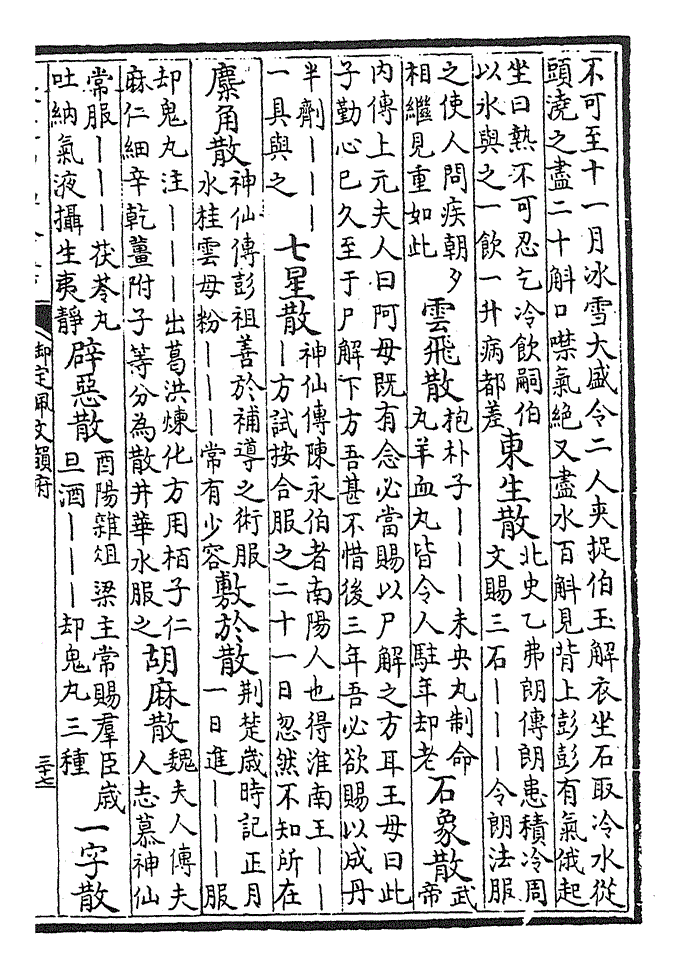 不可至十一月冰雪大盛令二人夾捉伯玉解衣坐石取冷水從
頭澆之盡二十斛口噤氣絕又盡水百斛見背上彭彭有氣俄起
坐曰熱不可忍乞冷飲嗣伯
以水與之一飲一升病都差
東生散
北史乙弗朗傳朗患積冷周
文賜三石｜｜｜令朗法服
之使人問疾朝夕
相繼見重如此
雲飛散
抱朴子｜｜｜未央丸制命
丸羊血丸皆令人駐年却老
石象散
武
帝
內傳上元夫人曰阿母既有念必當賜以尸解之方耳王母曰此
子勤心已久至于尸解下方吾甚不惜後三年吾必欲賜以成丹
半劑｜｜｜
一具與之
七星散
神仙傳陳永伯者南陽人也得淮南王｜｜
｜方試按合服之二十一日忽然不知所在
麋角散
神仙傳彭祖善於補導之術服
水桂雲母粉｜｜｜常有少容
敷於散
荆楚歲時記正月
一日進｜｜｜服
却鬼丸注｜｜｜出葛洪煉化方用栢子仁
麻仁細辛乾薑附子等分為散井華水服之
胡麻散
魏夫人傳夫
人志慕神仙
常服｜｜｜茯苓丸
吐納氣液攝生夷靜
辟惡散
酉陽雜俎梁主常賜羣臣歲
旦酒｜｜｜却鬼丸三種
一字散
御定佩文韻府
三十七